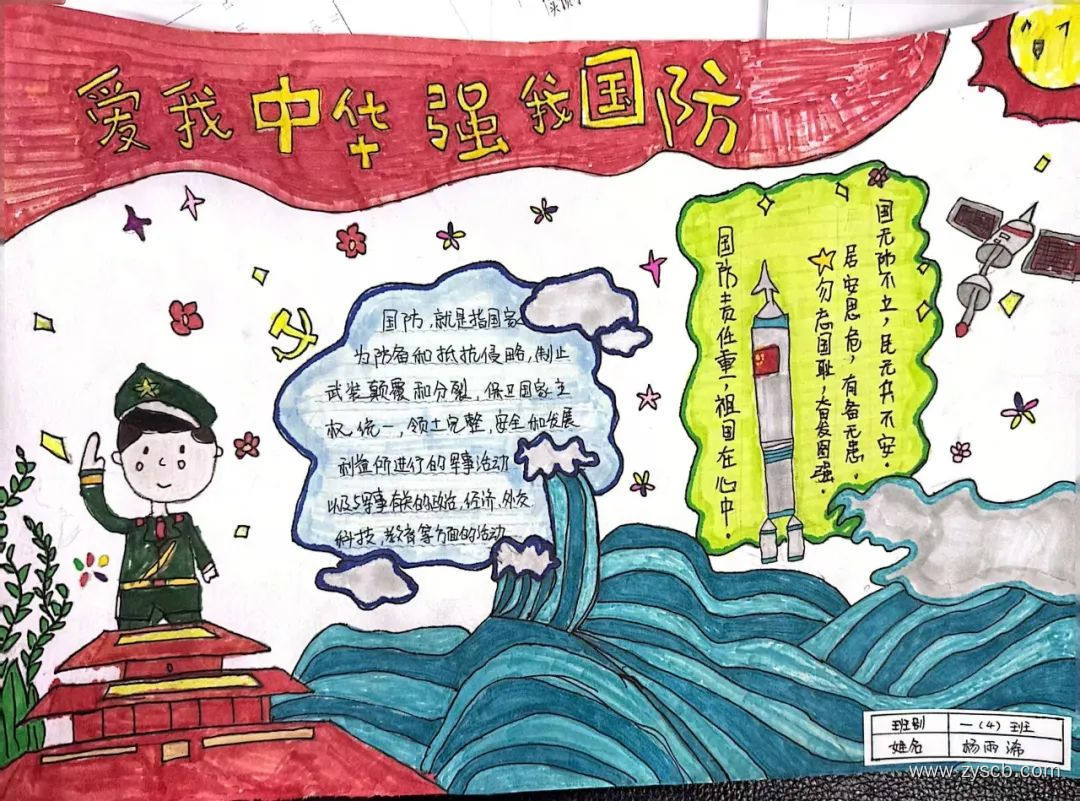 爱我中华 强我国防
国防,就是指国家
为防备和抵抗侵略,制止
武装颠覆和分裂,保卫国家主
权,统一,领土完整,安全和发展
利益所进行的军事活动
以及与军事有关的政治,经济,外交,
科技,教育等方面的活动
国无防不立,民无兵不安。
居安思危,有备无患。
勿忘国耻,奋发图强。
国防责任重,祖国在心中。
班别 一(4)班
姓名 杨雨浠
www.zyscb.com